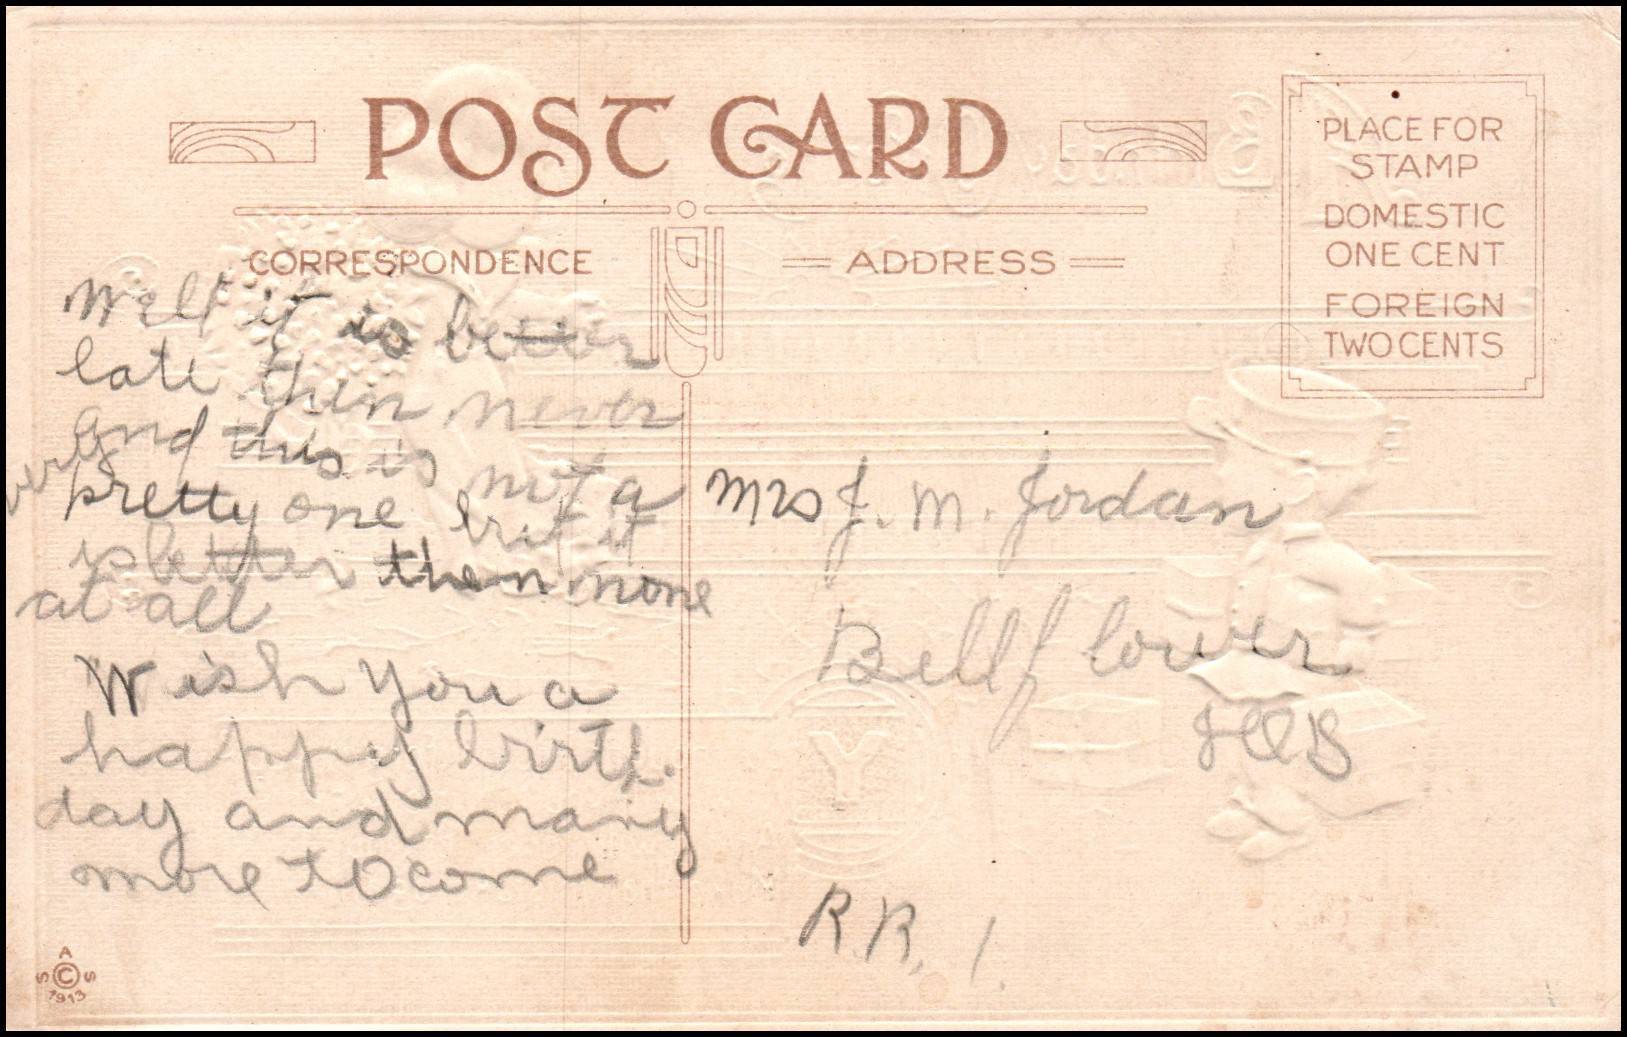 POST CARD
CORRESPONDENCE
ADDRESS
PLACE FOR
STAMP
DOMESTIC
ONE CENT
FOREIGN
TWO CENTS
Well it is better
late then never
and this is not a
very pretty one but it
is better then none
at all
Wish you a
happy birth.
day and many
more to come
Mrs J. M. Jordan
Bellflower
R.R. 1.
A
S © S
1913